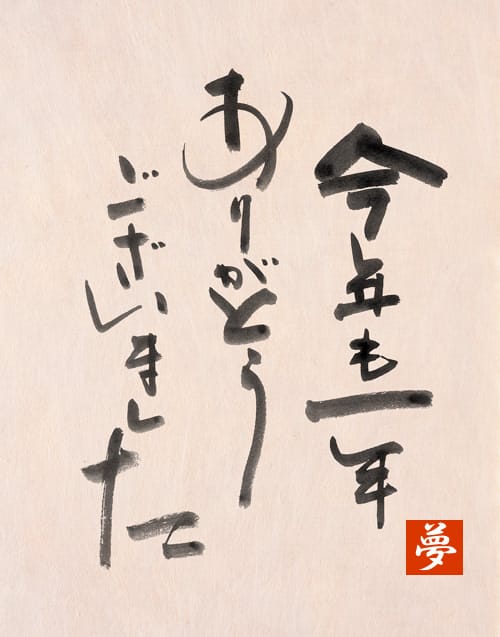 今年も一年
ありがとう
ございました
夢